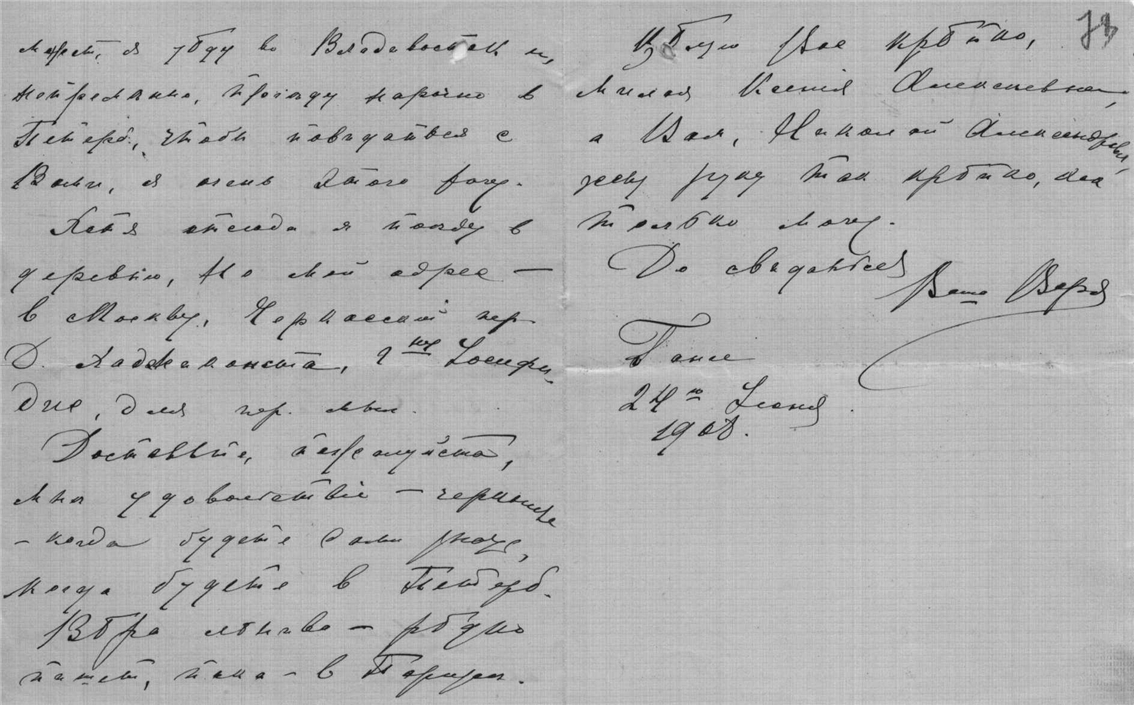 может, я уѣду во Владивосток и,
непременно, приеду нарочно в
Петерб., чтобы повидаться с
Вами, я очень этого хочу.
Хотя отсюда я поеду в
деревню, но мой адрес —
в Москву, Черкасский пер.
Д. Хаджиконста,
для пер. мне.
Доставьте, пожалуйста,
мне удовольствіе — черкните
— когда будете
когда будете в Петерб.
Вѣра лѣнива — рѣдко
пишет, пока — в Париже.
73
Цѣлую Вас крѣпко,
милая Ксенія Алексеевна,
а Вам, Николай Александрович,
жму руку так крѣпко, как
только могу.
До свиданья
Ваша Варя
24го Іюня
1908.